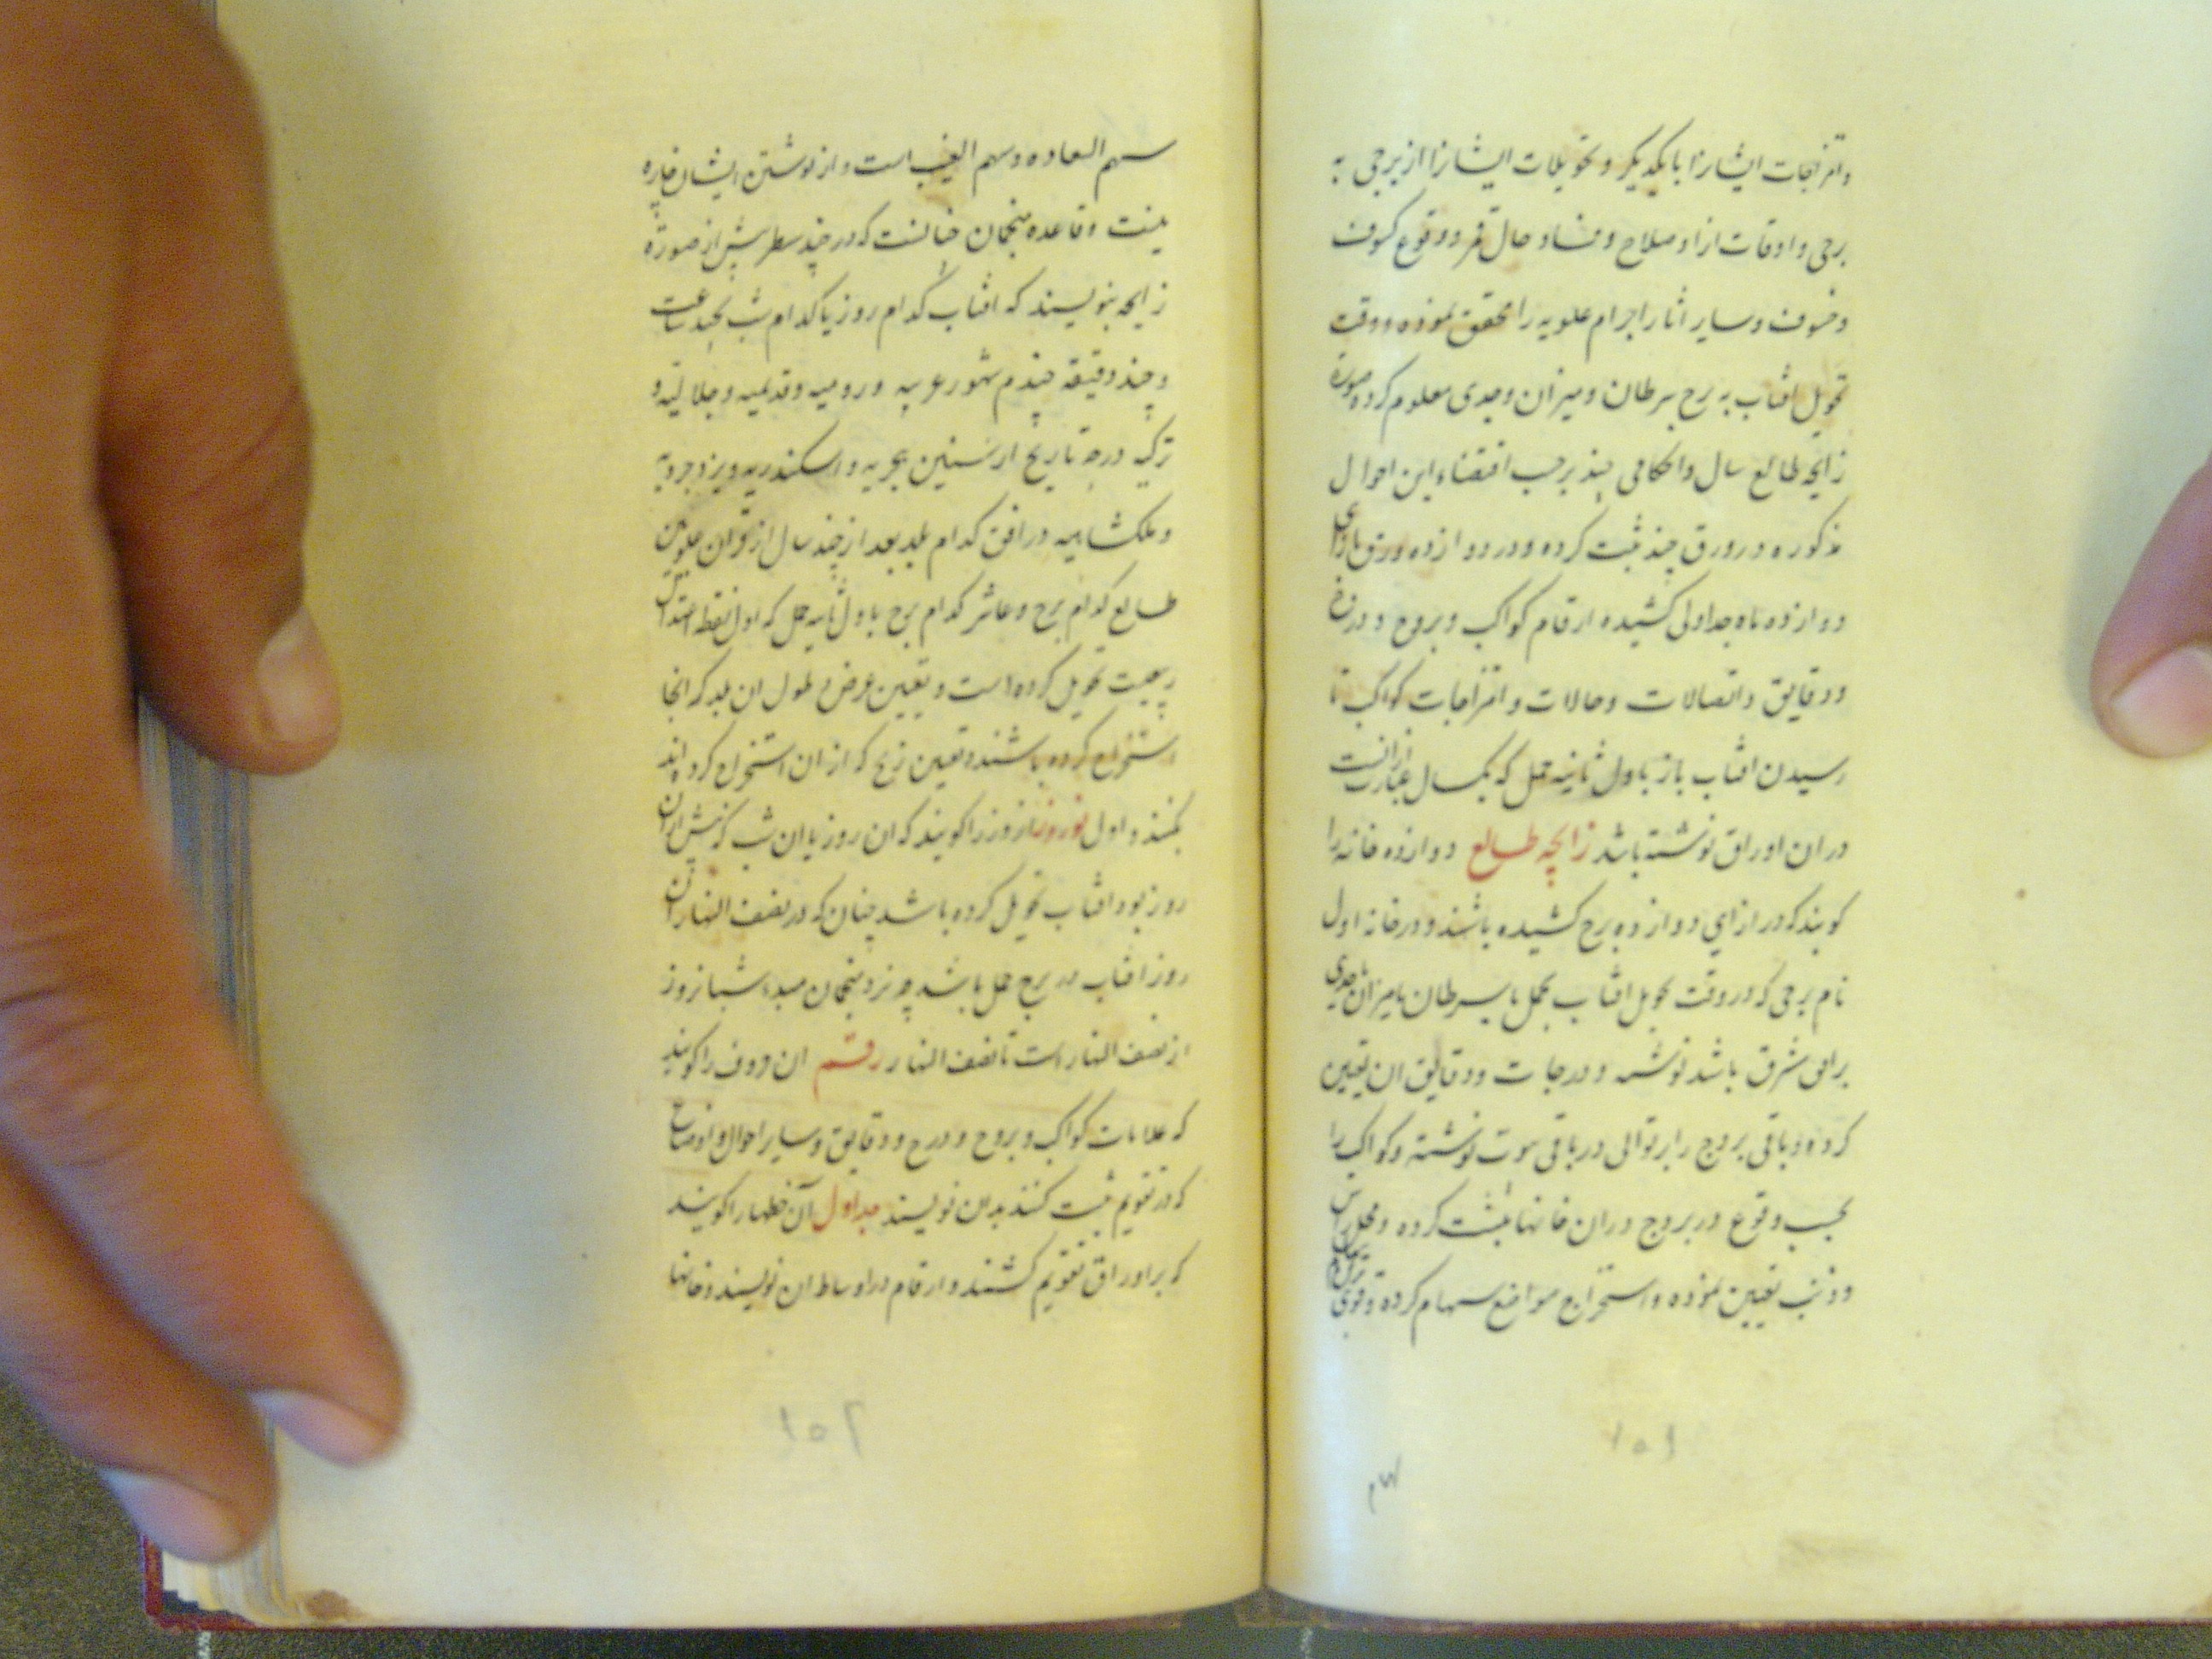 و امتزاجات ایشانرا با یکدیگر و تحویلات ایشانرا از برجی به
برجی و اوقات ازاد و صلاح و فساد حال قمر و وقوع کسوف
و خسوف و سایر اثار اجرام علویه را محقق نموده و وقت
تحویل افتاب به برج سرطان و میزان و جدی معلوم کرده صورة
زایجه طالع سال و احکامی چند بر حسب اقتضاء این احوال
مذکوره در ورق چند ثبت کرده و در دوازده ورق بازای
دوازده ماه جداولی کشیده ارقام کواکب و بروج و درج
و دقایق و اتصالات و حالات و امتزاجات کواکب تا
رسیدن افتاب باز باول ثانیه حمل که یکسال عبارت ازانست
دران اوراق نوشته باشد زایچه طالع دوازده خانه را
کویند که در ازای دوازده برج کشیده باشند و در خانه اول
نام برجی که در وقت تحویل افتاب بحمل یا سرطان یا میزان یا جدی
بر افق شرق باشد نوشته و درجات و دقایق ان تعیین
کرده و باقی بروج را بر توالی در باقی بیوت نوشته و کواکب را
بحسب وقوع در بروج دران خانها ثبت کرده و محل راس
و ذنب تعیین نموده و استخراج مواضع سهام کرده و قوی
۱۵۱
سهم السعاده و سهم الغیب است و از نوشتن ایشان چاره
نیست و قاعده منجمان چنانست که در چند سطر پیش از صورة
زایجه بنویسند که افتاب کدام روز یا کدام شب بچند ساعت
و چند دقیقه چندم شهور عربیه و رومیه و قدیمیه و جلالیه و
ترکیه درچه تاریخ از سنین هجریه و اسکندریه و یزدجردیه
و ملکشاهیه در افق کدام بلد بعد از چند سال از قران علویین
طالع کدام برج و عاشر کدام برج باول ثانیه حمل که اول نقطه اعتدال
ربیعیت تحویل کرده است و تعیین عرض و طول ان بلد که انجا
استخراج کرده باشند و تعیین زیج که از ان استخراج کرده اند
بکنند و اول نوروز انروز را کویند که ان روز یا ان شب که پیش از ان
روز بود افتاب تحویل کرده باشد چنان که در نصف النهار ان
روز افتاب در برج حمل باشد چه نزد منجمان مبداء شبانروز
از نصف النهار است تا نصف النهار رقم ان حروف را کویند
که علامات کواکب و بروج و درج و دقایق و سایر احوال و اوضاع
که در تقویم ثبت کنند بدان نویسند جداول آن خطها را کویند
که بر اوراق تقویم کشند و ارقام در اوساط ان نویسند و خانها
۱۵۲